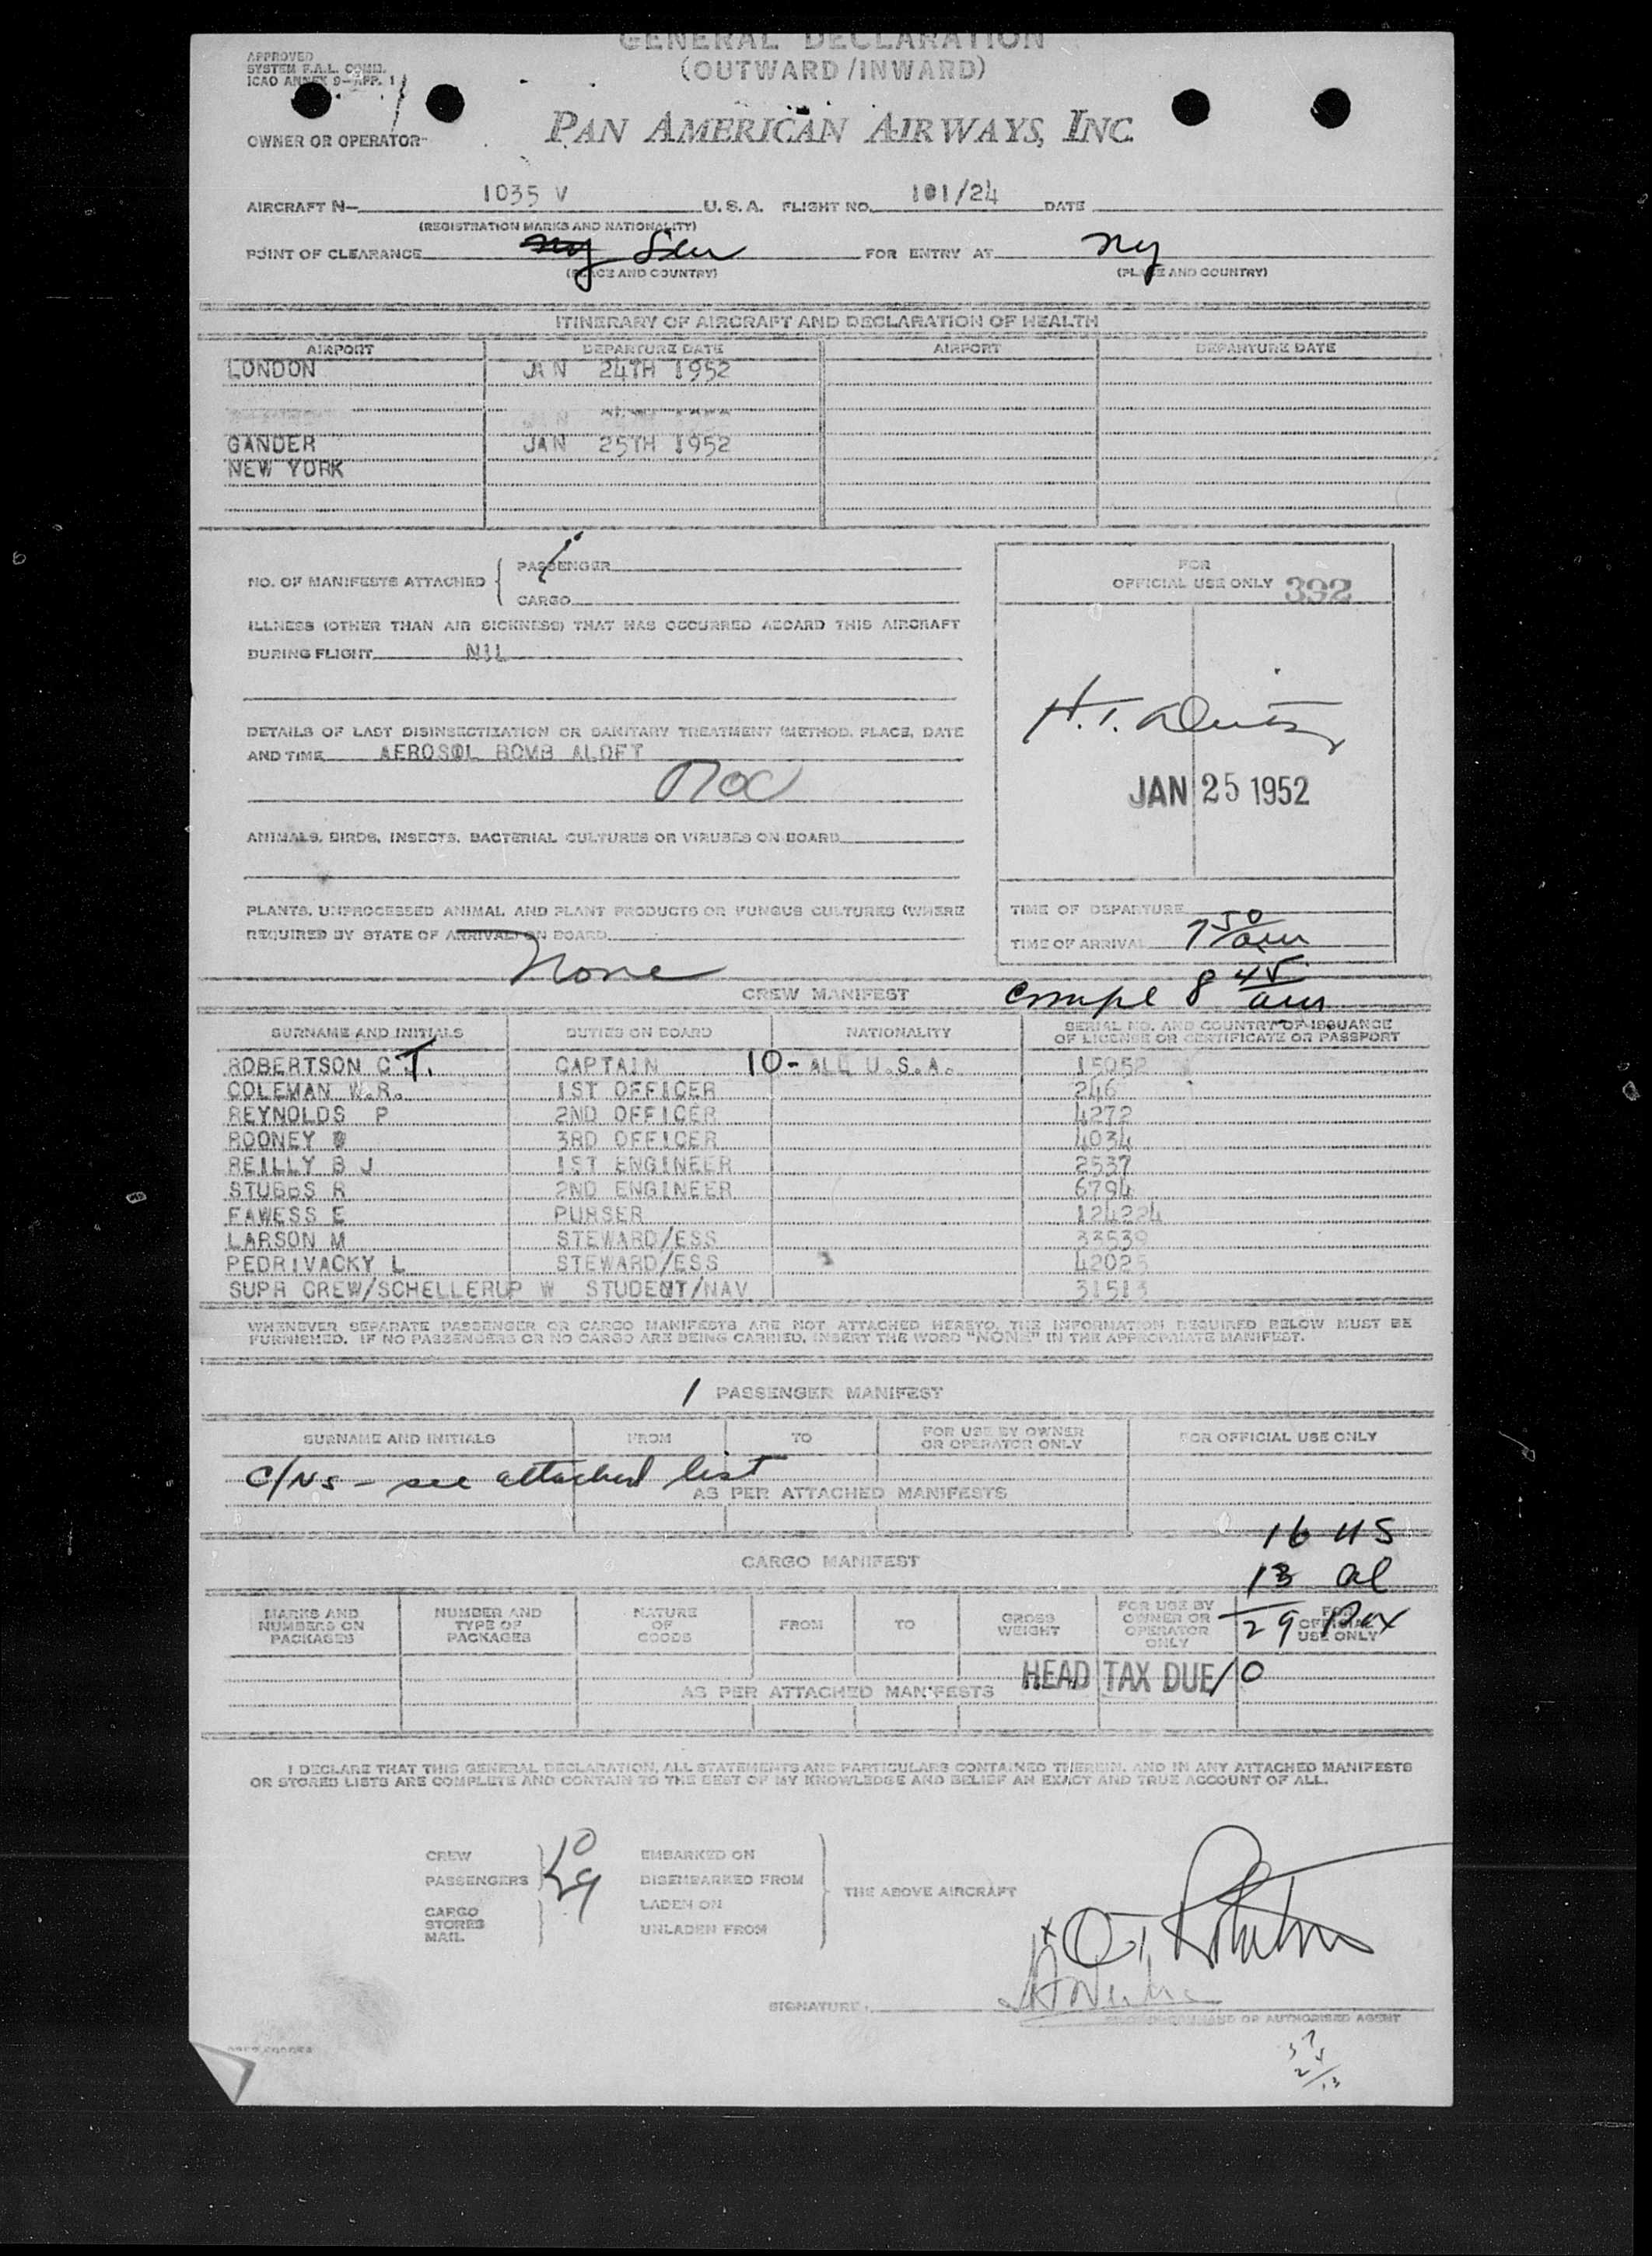 GENERAL DECLARATION
(OUTWARD/INWARD)
APPROVED
SYSTEM F.A.L. COMM.
ICAO ANNEX 9-APP. 1
OWNER OR OPERATOR
PAN AMERICAN AIRWAYS, INC.
AIRCRAFT N- 1035 V U.S.A. FLIGHT NO. 101/24 DATE
(REGISTRATION MARKS AND NATIONALITY)
POINT OF CLEARANCE FOR ENTRY AT NY
(PLACE AND COUNTRY) (PLACE AND COUNTRY)
ITINERARY OF AIRCRAFT AND DECLARATION OF HEALTH
AIRPORT DEPARTURE DATE AIRPORT DEPARTURE DATE
LONDON JAN 24TH 1952
GANDER JAN 25TH 1952
NEW YORK
NO. OF MANIFESTS ATTACHED PASSENGER
CARGO
FOR
OFFICIAL USE ONLY 392
ILLNESS (OTHER THAN AIR SICKNESS) THAT HAS OCCURRED ABOARD THIS AIRCRAFT
DURING FLIGHT NIL
DETAILS OF LAST DISINSECTIZATION OR SANITARY TREATMENT (METHOD, PLACE, DATE
AND TIME AEROSOL BOMB ALOFT
JAN 25 1952
ANIMALS, BIRDS, INSECTS, BACTERIAL CULTURES OR VIRUSES ON BOARD
PLANTS, UNPROCESSED ANIMAL AND PLANT PRODUCTS OR FUNGUS CULTURES (WHERE
REQUIRED BY STATE OF ARRIVAL) ON BOARD
None
TIME OF DEPARTURE
TIME OF ARRIVAL 7 50 am
CREW MANIFEST compl 8 45 am
SURNAME AND INITIALS DUTIES ON BOARD NATIONALITY SERIAL NO. AND COUNTRY OF ISSUANCE
OF LICENSE OR CERTIFICATE OR PASSPORT
ROBERTSON C T. CAPTAIN 10- ALL U.S.A. 15052
COLEMAN W.R. 1ST OFFICER 246
REYNOLDS P 2ND OFFICER 4272
ROONEY 3RD OFFICER 4034
REILLY B J 1ST ENGINEER 2537
STUBBS R 2ND ENGINEER 6794
FAWESS E PURSER 124224
LARSON M STEWARD/ESS 33539
PEDRIVACKY L STEWARD/ESS 42025
SUPR CREW/SCHELLERUP W STUDENT/NAV 31513
WHENEVER SEPARATE PASSENGER OR CARGO MANIFESTS ARE NOT ATTACHED HERETO, THE INFORMATION REQUIRED BELOW MUST BE
FURNISHED. IF NO PASSENGERS OR NO CARGO ARE BEING CARRIED, INSERT THE WORD "NONE" IN THE APPROPRIATE MANIFEST.
1 PASSENGER MANIFEST
SURNAME AND INITIALS FROM TO FOR USE BY OWNER
OR OPERATOR ONLY FOR OFFICIAL USE ONLY
C/Ns - see attached list
AS PER ATTACHED MANIFESTS
16 US
CARGO MANIFEST
13 al
29 Pax
MARKS AND
NUMBERS ON
PACKAGES
NUMBER AND
TYPE OF
PACKAGES
NATURE
OF
GOODS
FROM
TO
GROSS
WEIGHT
FOR USE BY
OWNER OR
OPERATOR
ONLY
FOR
OFFICIAL
USE ONLY
HEAD TAX DUE / 0
AS PER ATTACHED MANIFESTS
I DECLARE THAT THIS GENERAL DECLARATION, ALL STATEMENTS AND PARTICULARS CONTAINED THEREIN, AND IN ANY ATTACHED MANIFESTS
OR STORES LISTS ARE COMPLETE AND CONTAIN TO THE BEST OF MY KNOWLEDGE AND BELIEF AN EXACT AND TRUE ACCOUNT OF ALL.
CREW
PASSENGERS
CARGO
STORES
MAIL
10
29
EMBARKED ON
DISEMBARKED FROM
LADEN ON
UNLADEN FROM
THE ABOVE AIRCRAFT
SIGNATURE
COMMAND OR AUTHORISED AGENT